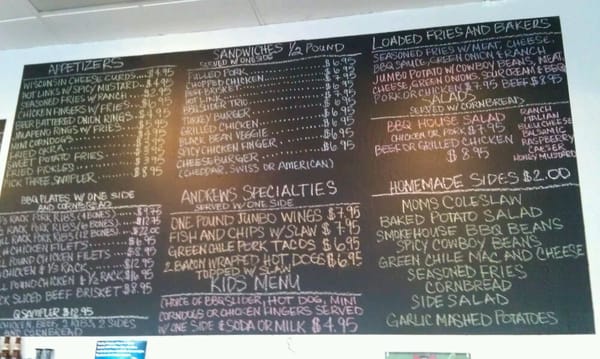 APPETIZERS
WISCONSIN CHEESE CURDS $4.95
HOT LINKS W/ SPICY MUSTARD
SEASONED FRIES W/
CHICKEN FINGERS W/ FRIES
BEER BATTERED ONION RINGS
JALAPENO RINGS W/ FRIES
MINI CORNDOGS
POTATO FRIES
FRIED PICKLES
PICK THREE SAMPLER
BBQ PLATES W/ ONE SIDE
AND CORNBREAD
RACK PORK RIBS (4 BONES)
RACK PORK RIBS
RACK PORK RIBS (12 BONES) $22.00
CHICKEN FILLETS $6.95
POUND CHICKEN FILETS $8.95
CHICKEN & 1/3 RACK $12.95
POUND CHICKEN & 1/2 RACK $16.95
SLICED BEEF BRISKET $8.95
Q SAMPLER $12.95
CHICKEN, BEEF, 2 RIBS, 2 SIDES
AND CORNBREAD
SANDWICHES 1/2 POUND
SERVED W/ ONE SIDE
PULLED PORK $6.95
CHOPPED CHICKEN $6.95
BEEF BRISKET
HOT LINK
BBQ SLIDER TRIO
TURKEY BURGER
GRILLED CHICKEN
BLACK BEAN VEGGIE
SPICY CHICKEN FINGER
CHEESEBURGER
(CHEDDAR, SWISS OR AMERICAN)
ANDREWS SPECIALTIES
SERVED W/ ONE SIDE
ONE POUND JUMBO WINGS $7.95
FISH AND CHIPS W/ SLAW $7.95
GREEN CHILE PORK TACOS $6.95
2 BACON WRAPPED HOT DOGS $6.95
TOPPED W/ SLAW
KIDS MENU
CHOICE OF BBQ SLIDER, HOT DOG, MINI
CORNDOGS OR CHICKEN FINGERS SERVED
W/ ONE SIDE & SODA OR MILK $4.95
LOADED FRIES AND BAKERS
SEASONED FRIES W/ MEAT, CHEESE
BBQ SAUCE, GREEN ONION & RANCH
JUMBO POTATO W/ COWBOY BEANS, MEAT,
CHEESE, GREEN ONIONS, SOUR CREAM & BBQ
PORK OR CHICKEN $7.95 BEEF $8.95
SALADS
SERVED W/ CORNBREAD
BBQ HOUSE SALAD
CHICKEN OR PORK $7.95
BEEF OR GRILLED CHICKEN
$8.95
RANCH
ITALIAN
BLUE CHEESE
BALSAMIC
RASPBERRY
CAESER
HONEY MUSTARD
HOMEMADE SIDES $2.00
MOMS COLESLAW
BAKED POTATO SALAD
SMOKEHOUSE BBQ BEANS
SPICY COWBOY BEANS
GREEN CHILE MAC AND CHEESE
SEASONED FRIES
CORNBREAD
SIDE SALAD
GARLIC MASHED POTATOES